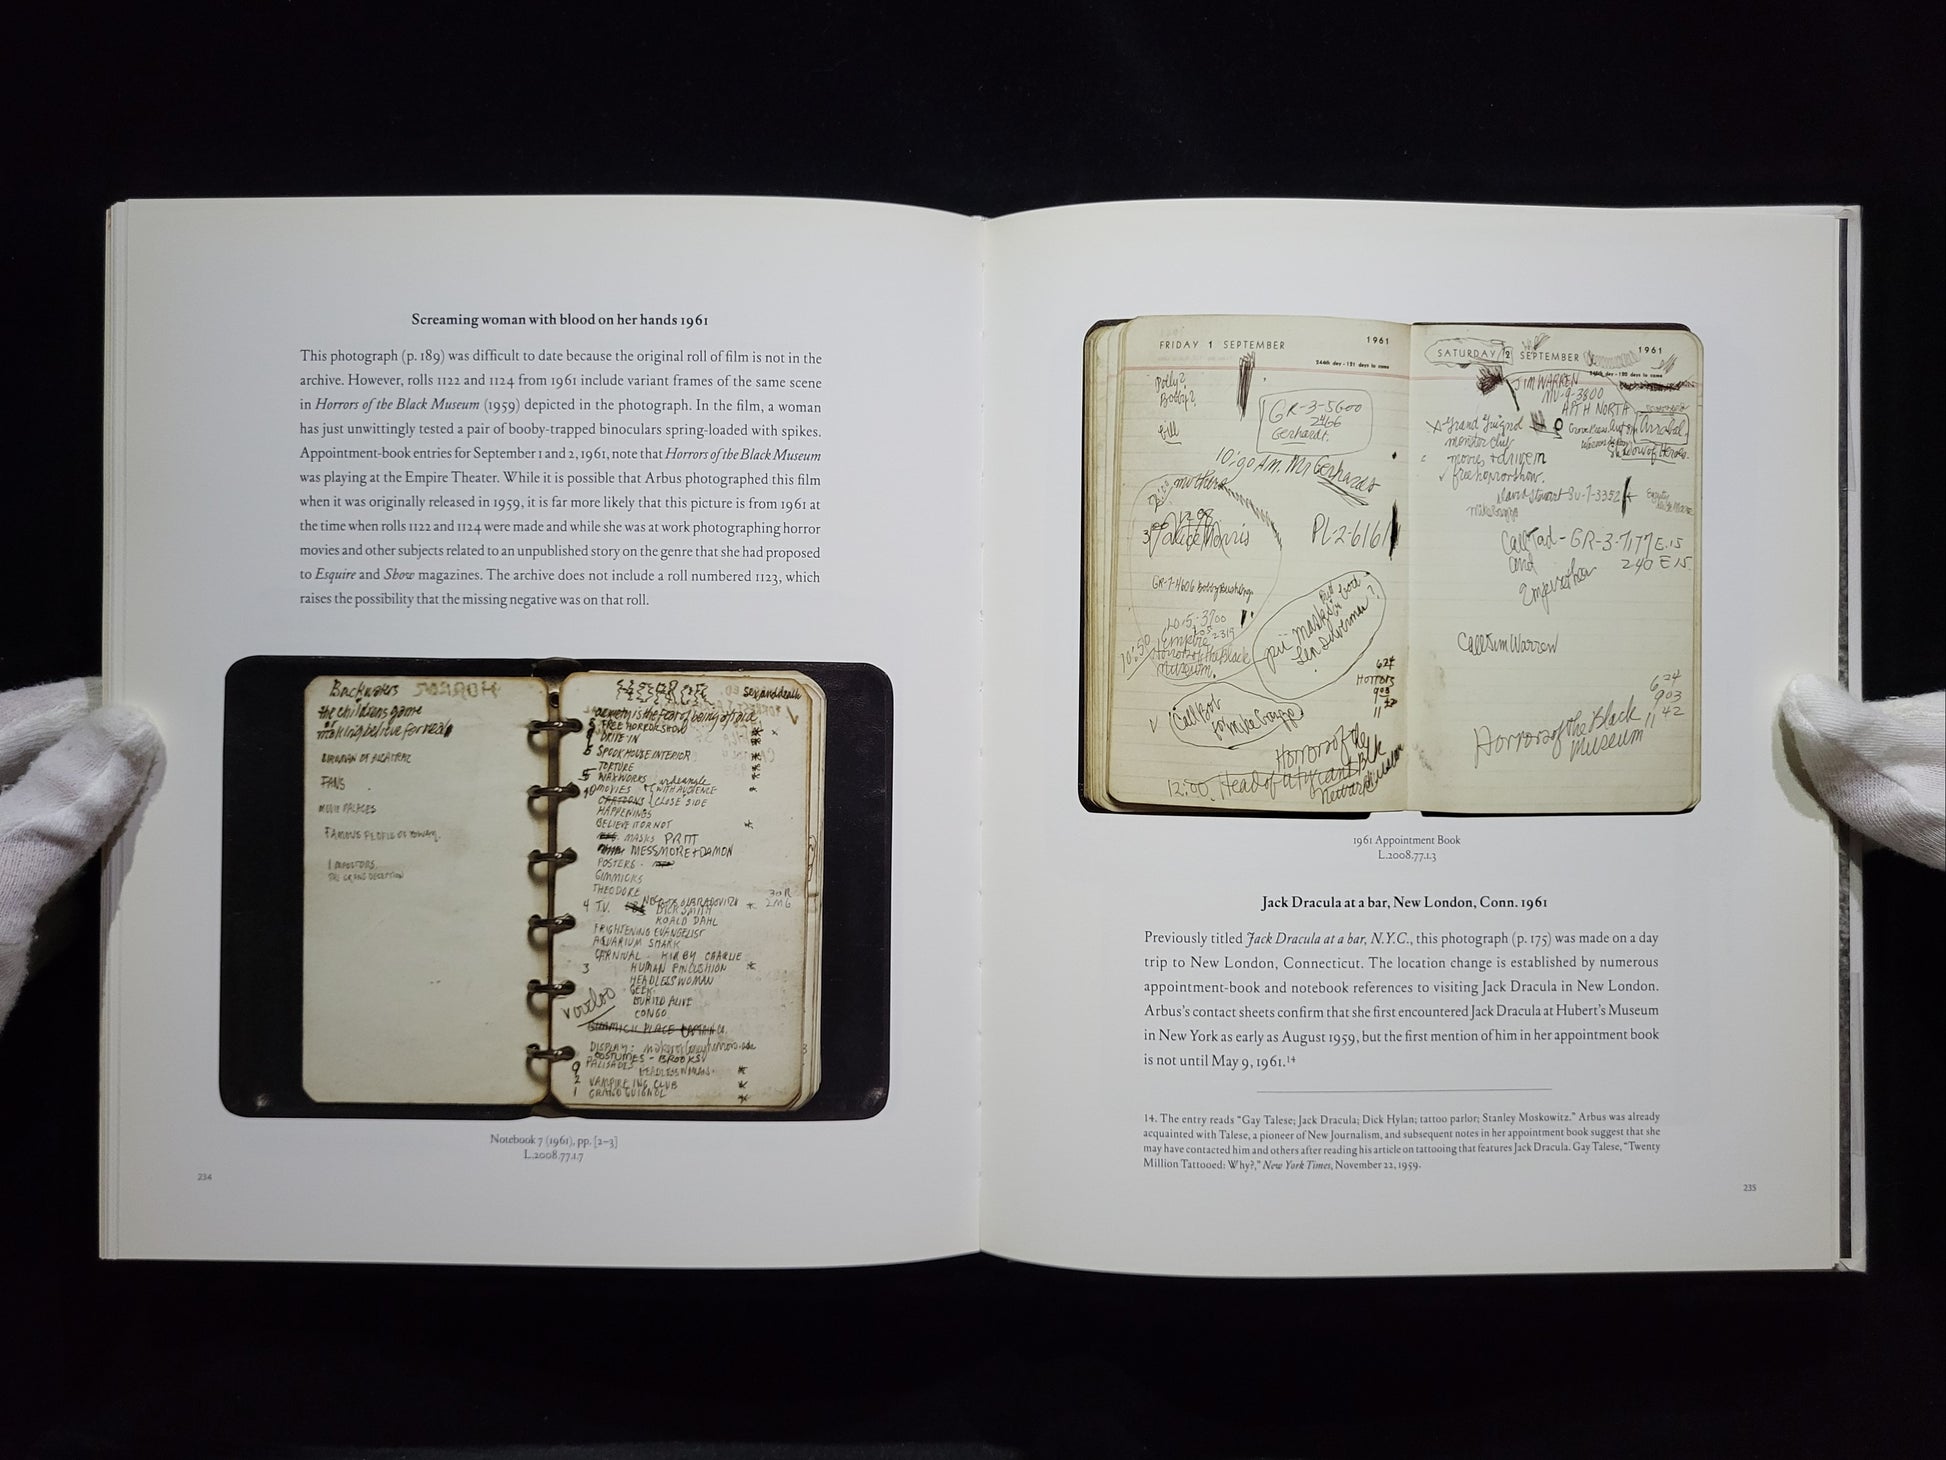 Screaming woman with blood on her hands 1961
This photograph (p. 189) was difficult to date because the original roll of film is not in the
archive. However, rolls 1122 and 1124 from 1961 include variant frames of the same scene
in Horrors of the Black Museum (1959) depicted in the photograph. In the film, a woman
has just unwittingly tested a pair of booby-trapped binoculars spring-loaded with spikes.
Appointment-book entries for September 1 and 2, 1961, note that Horrors of the Black Museum
was playing at the Empire Theater. While it is possible that Arbus photographed this film
when it was originally released in 1959, it is far more likely that this picture is from 1961 at
the time when rolls 1122 and 1124 were made and while she was at work photographing horror
movies and other subjects related to an unpublished story on the genre that she had proposed
to Esquire and Show magazines. The archive does not include a roll numbered 1123, which
raises the possibility that the missing negative was on that roll.
Backwaters
the childrens game
of
making believe for real
BIRDMAN OF ALCATRAZ
FANS
MOVIE PALACES
FAMOUS PEOPLE OF
IMPOSTORS
THE GRAND DECEPTION
sex and death
anxiety is the fear of being afraid
FREE HORROR SHOW
DRIVE-IN
SPOOK HOUSE INTERIOR
TORTURE
5 WAXWORKS
MOVIES WITH AUDIENCE
CARTOONS CLOSE SIDE
HAPPENINGS
BELIEVE IT OR NOT
MASKS
MESSMORE + DAMON
POSTERS
GIMMICKS
THEODORE
4 T.V.
JACK SMITH
ROALD DAHL
FRIGHTENING EVANGELIST
AQUARIUM SHARK
CARNIVAL - KIRBY CHARLIE
3 HUMAN PINCUSHION
HEADLESS WOMAN
GEEK
BURIED ALIVE
CONGO
voodoo
DISPLAY:
COSTUMES - BROOKS
9 PALISADES HEADLESS WOMAN
2 VAMPIRE CLUB
1 GRAND GUIGNOL
Notebook 7 (1961), pp. [2–3]
L.2008.77.1.7
234
FRIDAY 1 SEPTEMBER 1961
244th day - 121 days to come
Polly?
Bobby?
Bill
GR-3-5600
2466
Gerhardt.
10:90 AM. Mr Gerhardt
mothers
Alice Morris
PL-2-6161
LO-5-3700
Empire
10:50 Horrors of the Black
Museum.
Call Bob
624
HORRORS
903
11 42
Horrors of the
Blk
Museum
12:00. Head of a tyrant
SATURDAY 2 SEPTEMBER 1961
JIM WARREN
MU-9-3800
APT H NORTH
Grand Guignol
monster club
movies + drive in
free horror show.
Arrabal
David Stewart - SU-7-3352
Call Tad - GR-3-7177 E. 15
and 240 E 15.
Call Jim Warren
624
903
11 42
Horrors of the Black
Museum
1961 Appointment Book
L.2008.77.1.3
Jack Dracula at a bar, New London, Conn. 1961
Previously titled Jack Dracula at a bar, N.Y.C., this photograph (p. 175) was made on a day
trip to New London, Connecticut. The location change is established by numerous
appointment-book and notebook references to visiting Jack Dracula in New London.
Arbus's contact sheets confirm that she first encountered Jack Dracula at Hubert's Museum
in New York as early as August 1959, but the first mention of him in her appointment book
is not until May 9, 1961.14
14. The entry reads “Gay Talese; Jack Dracula; Dick Hylan; tattoo parlor; Stanley Moskowitz.” Arbus was already
acquainted with Talese, a pioneer of New Journalism, and subsequent notes in her appointment book suggest that she
may have contacted him and others after reading his article on tattooing that features Jack Dracula. Gay Talese, “Twenty
Million Tattooed: Why?,” New York Times, November 22, 1959.
235